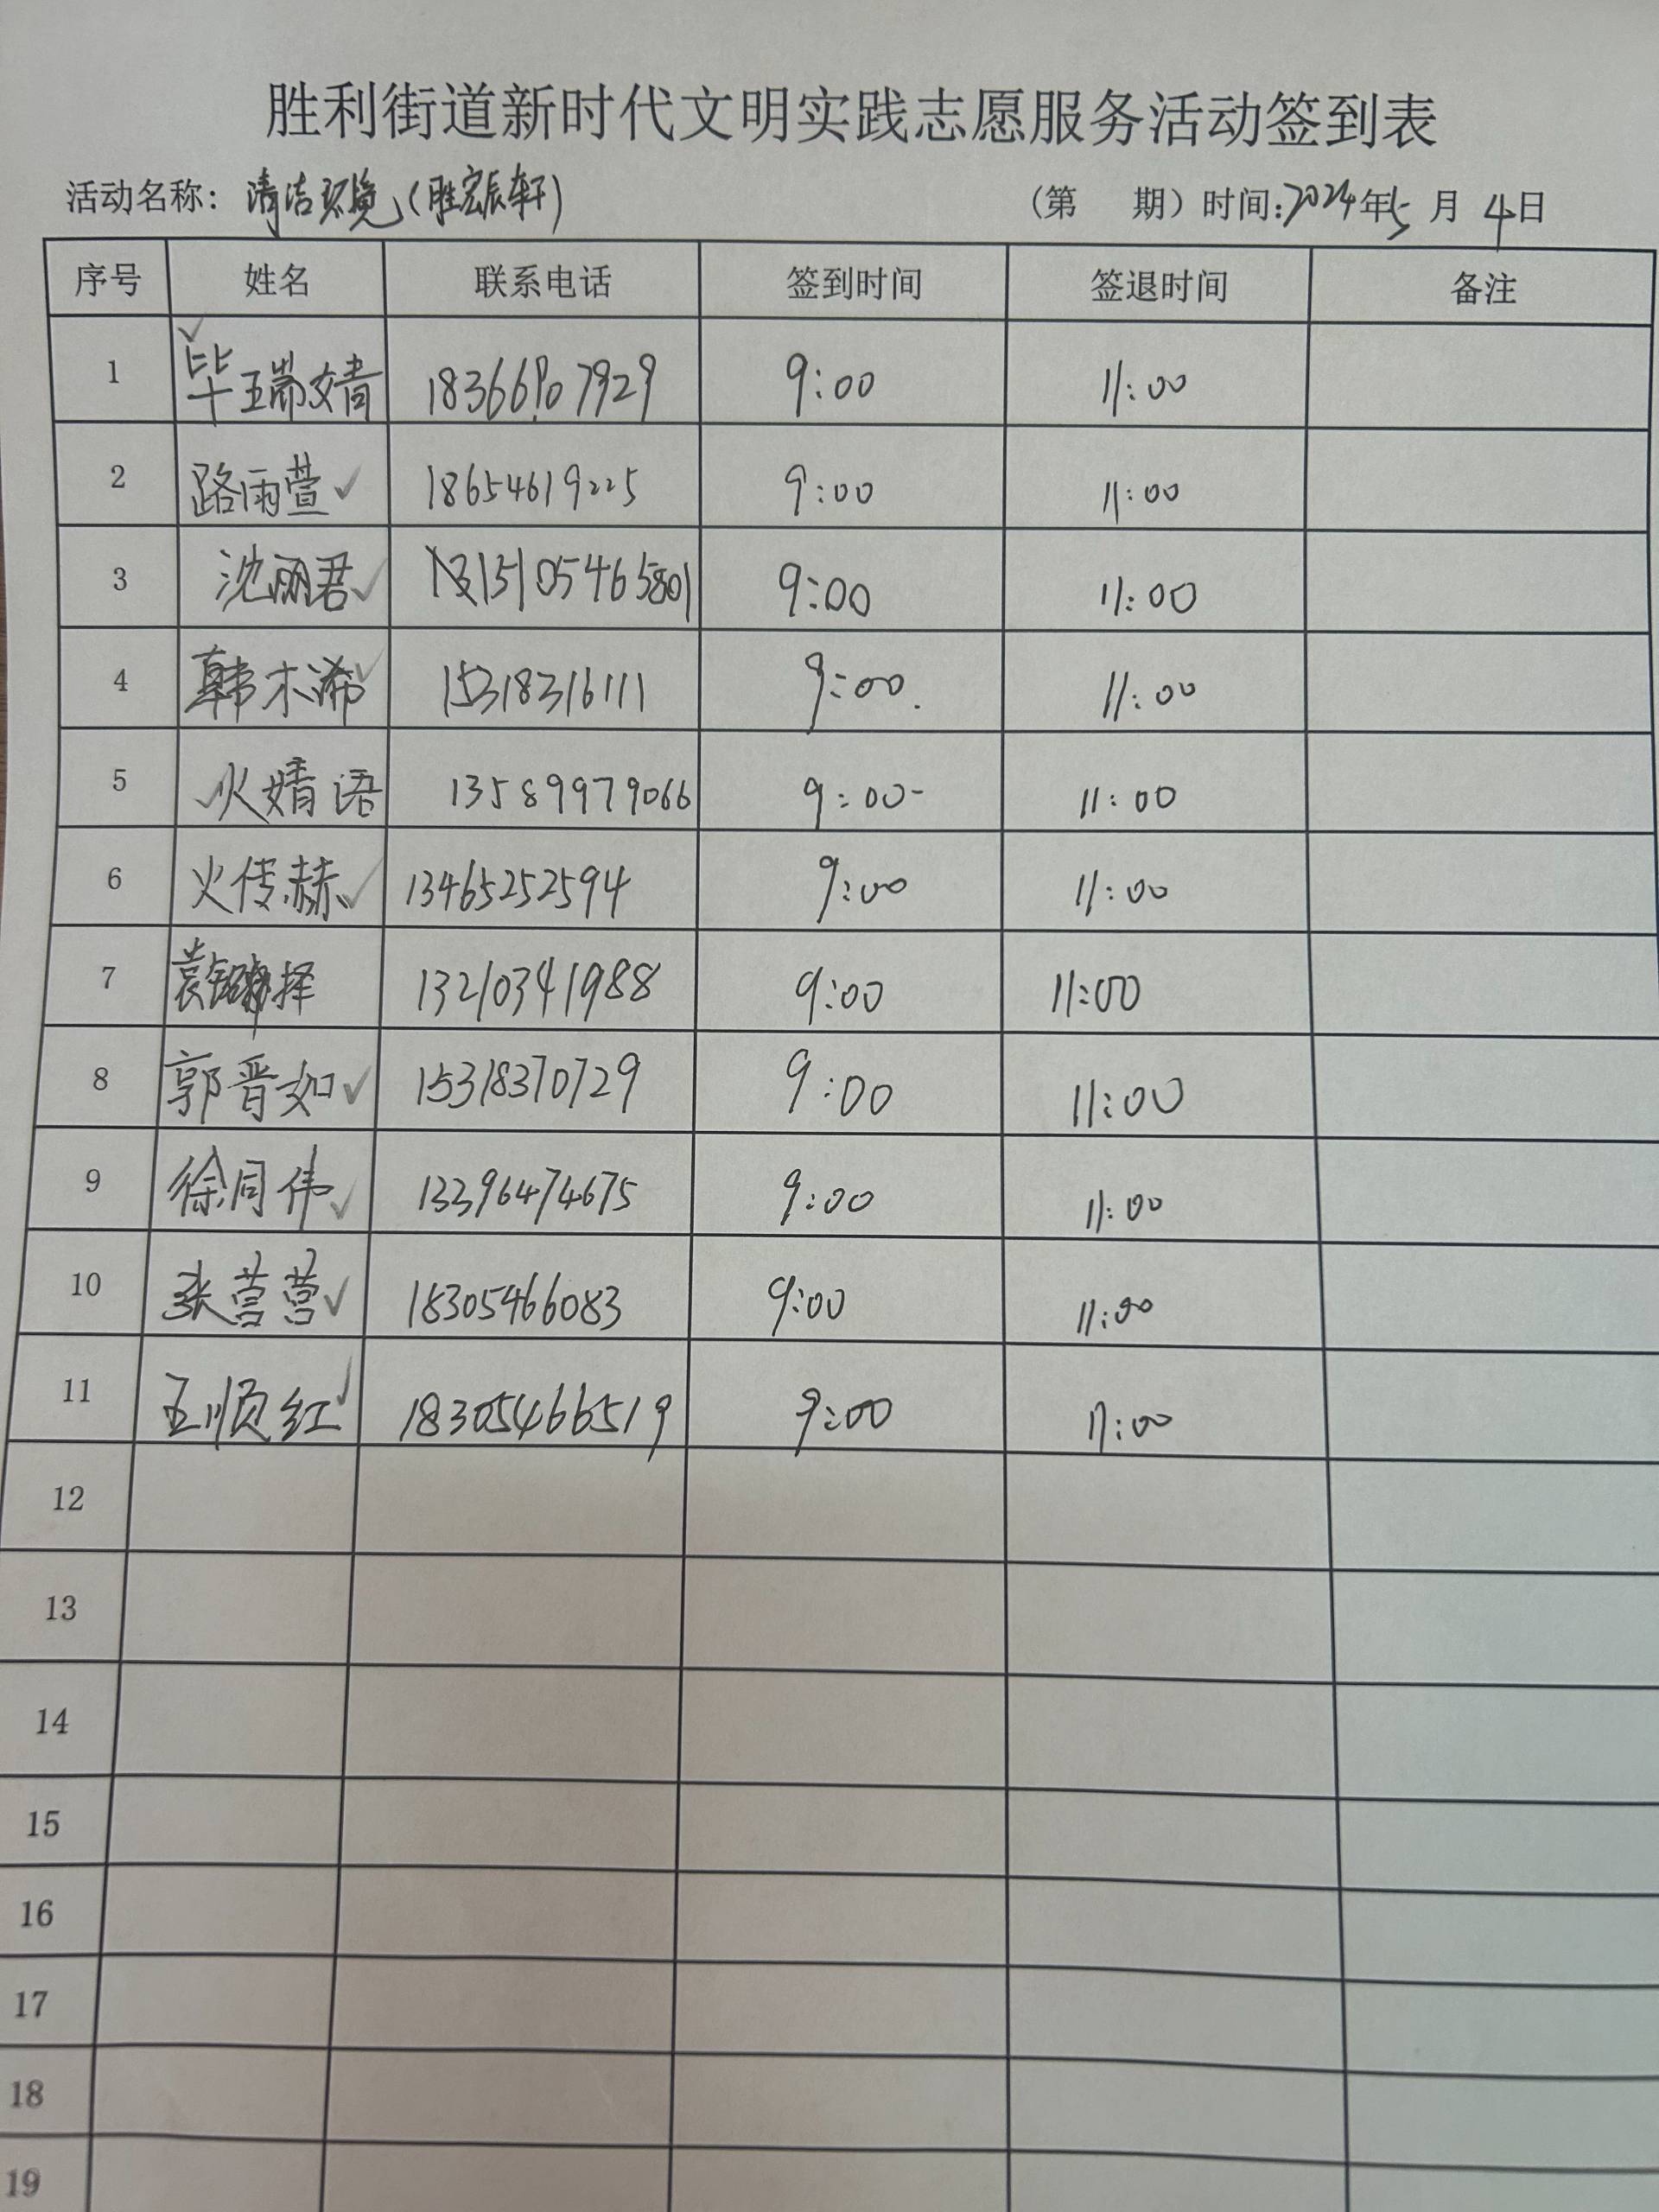 胜利街道新时代文明实践志愿服务活动签到表
活动名称：清洁环境（胜宏辰轩） （第 期）时间：2024年5月4日
序号 姓名 联系电话 签到时间 签退时间 备注
1 毕瑞婧 18366907929 9:00 11:00
2 路雨萱 18654619225 9:00 11:00
3 沈丽君 15105465801 9:00 11:00
4 韩木浠 15318316111 9:00 11:00
5 火婧语 13589979066 9:00 11:00
6 火传赫 13465252594 9:00 11:00
7 袁 择 13210341988 9:00 11:00
8 郭晋如 15318370729 9:00 11:00
9 徐同伟 13396474675 9:00 11:00
10 张营营 18305466083 9:00 11:00
11 王顺红 18305466519 9:00 11:00
12
13
14
15
16
17
18
19